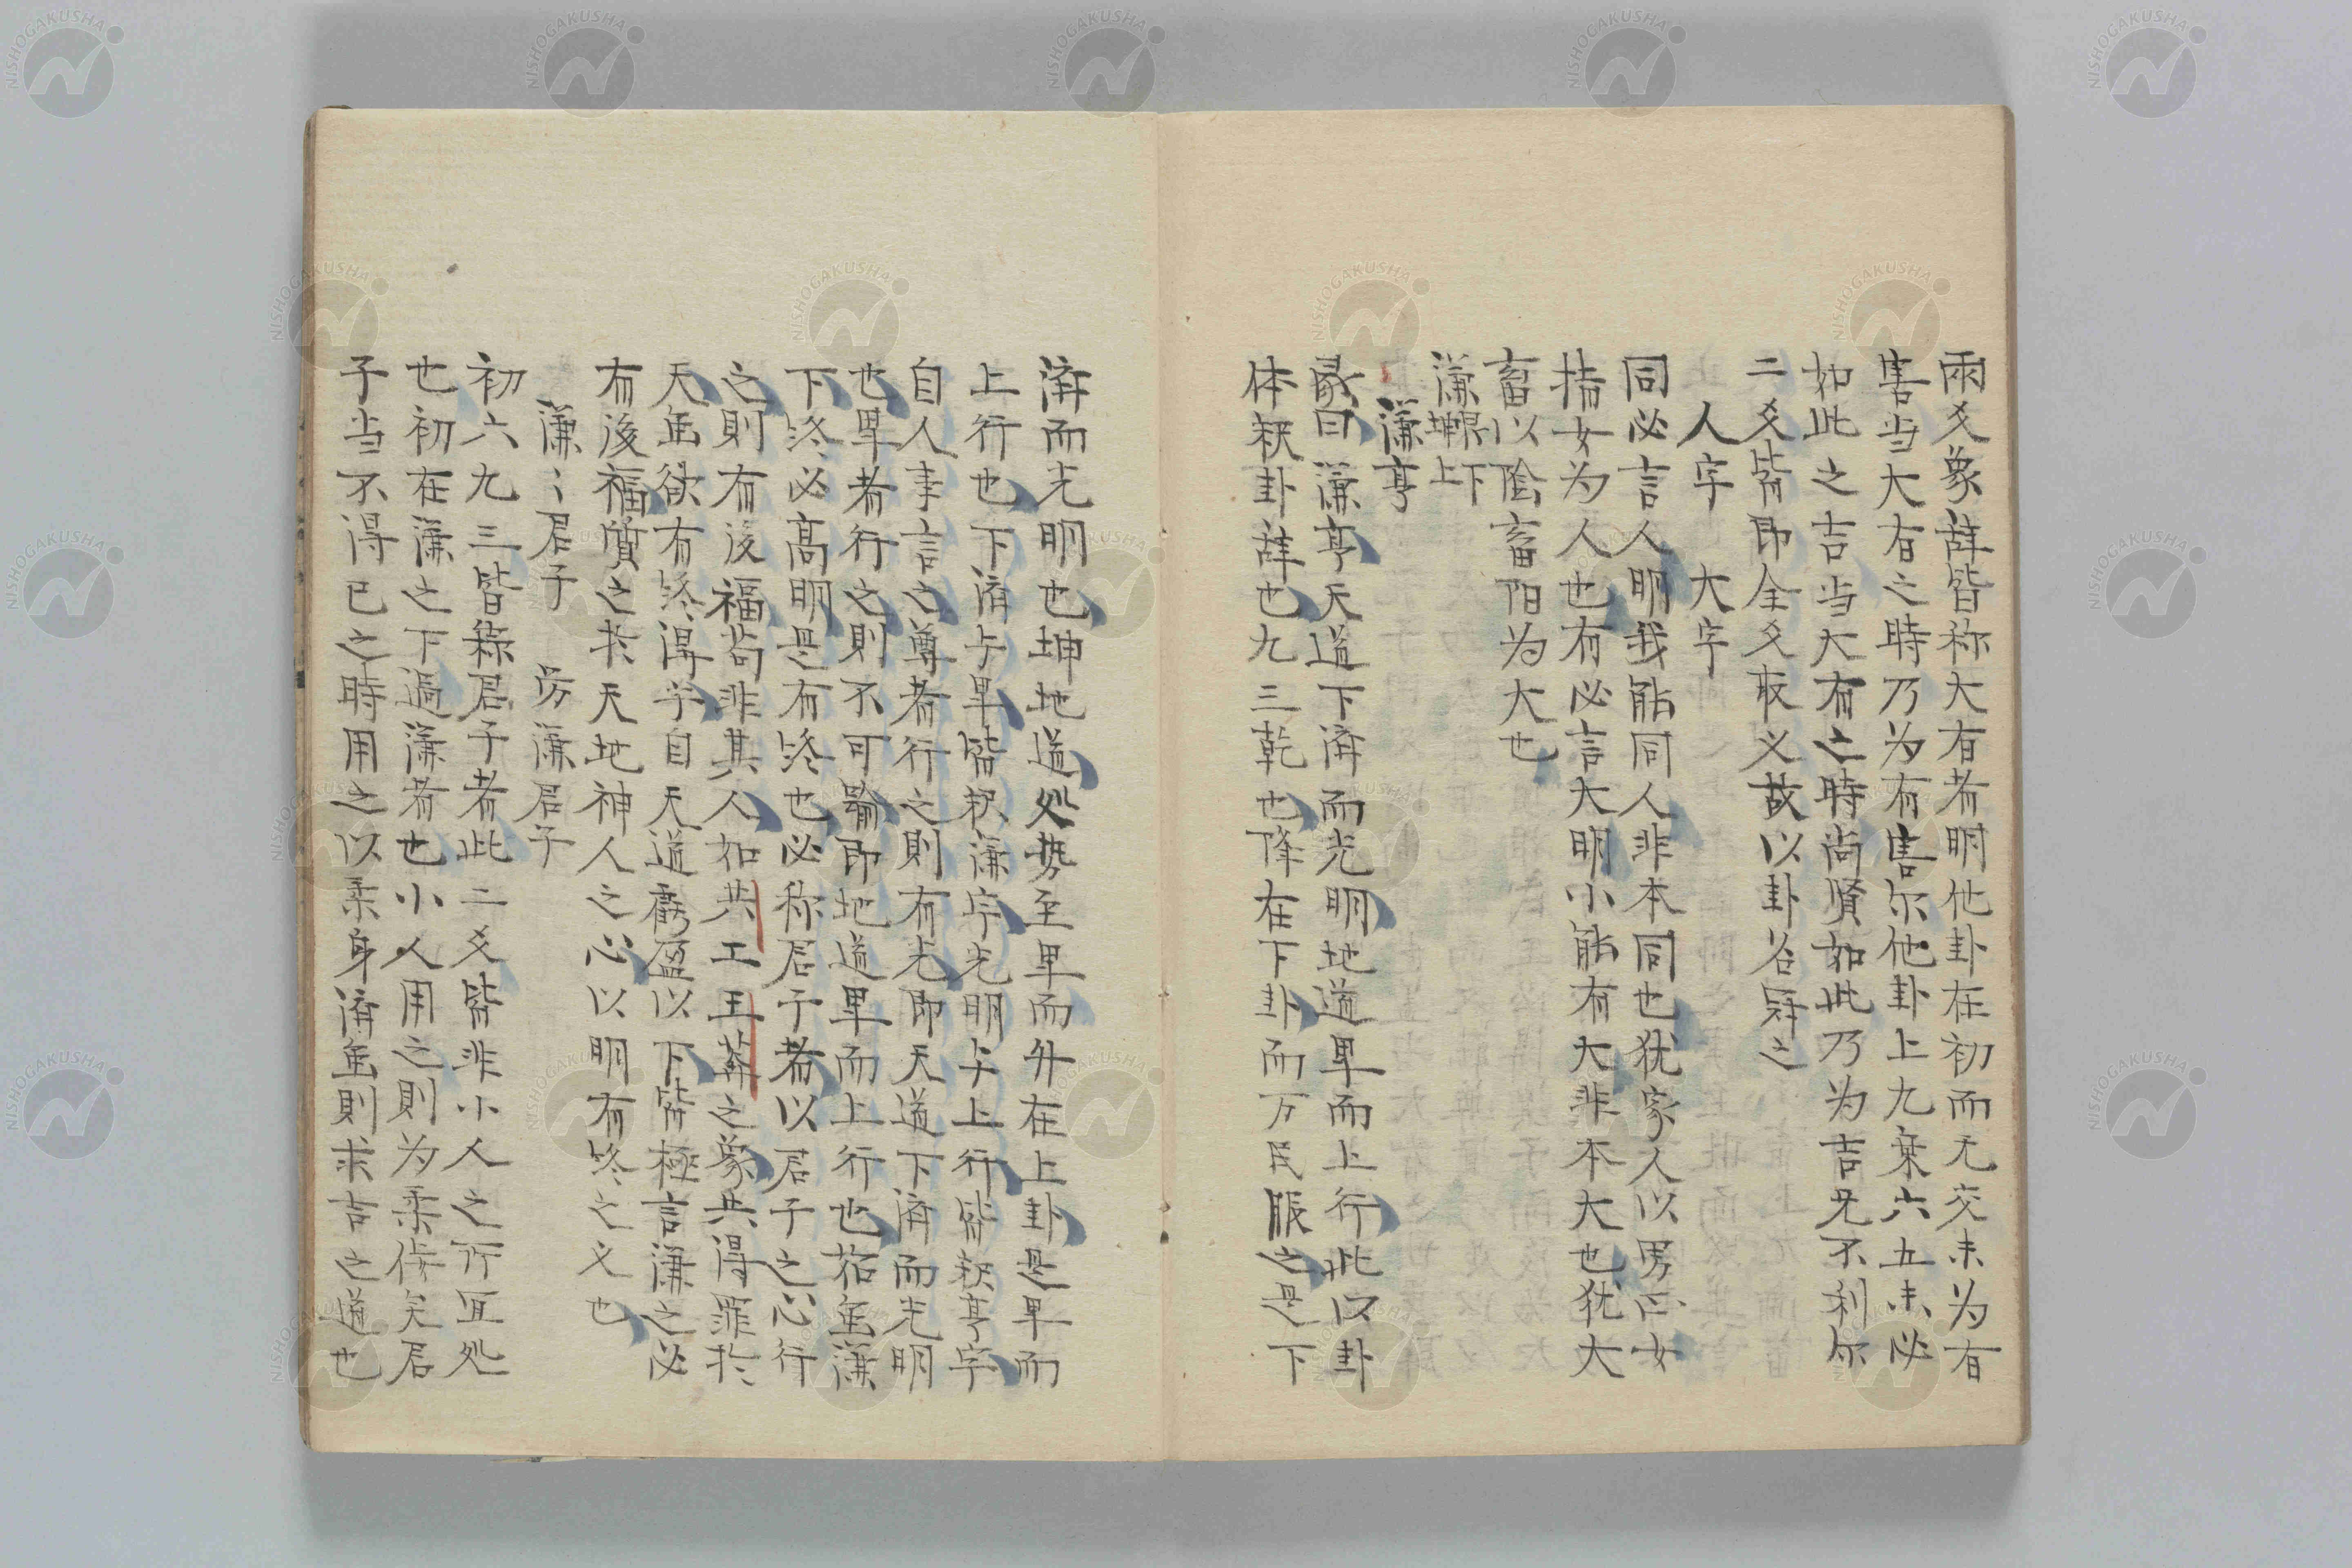 兩爻象辞皆称大有者明他卦在初而无交未为有
害当大有之時乃为有害尔他卦上九乗六五未必
如此之吉当大有之時尚贤如此乃为吉无不利尔
二爻皆即全爻取义故以卦名冠之
人字　大字
同必言人明我能同人非本同也犹家人以男正女
女为人也有必言大明小能有大非本大也犹大
畜以陰畜阳为大也
谦坤上艮下
谦亨
彖曰谦亨天道下济而光明地道卑而上行此以卦
体釈卦辞也九三乾也降在下卦而万民服之是下
济而光明也坤地道处势至卑而升在上卦是卑而
上行也下济与卑皆釈谦字光明与上行皆釈亨字
自人事言之尊者行之則有光即天道下济而光明
也卑者行之則不可踰即地道卑而上行也若虽谦
下终必高明是有终也必称君子者以君子之心行
之則有後福苟非其人如共工王莽之象共得罪於
天虽欲有终得乎自天道虧盈以下皆極言谦之必
有後福質之於天地神人之心以明有终之义也
谦〻君子　劳谦君子
初六九三皆称君子者此二爻皆非小人之所宜処
也初在谦之下過谦者也小人用之則为柔矣君
子当不得已之時用之以柔身济虽則求吉之道也
NISHOGAKUSHA